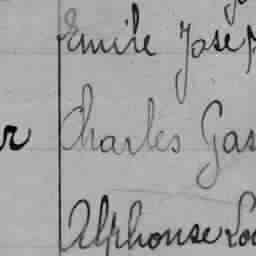 Emile Josep
r Charles Gas
Alphonse Lou